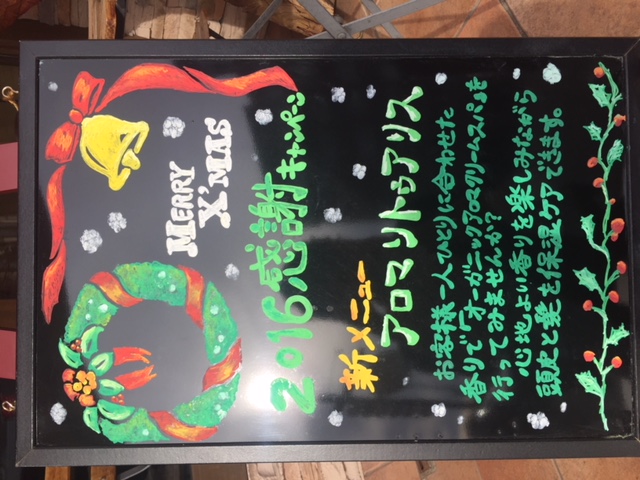 MERRY
X'MAS
2016感謝キャンペーン
新メニュー
アロマリトゥアリス
お客様一人ひとりに合わせた
香りで「オーガニックアロマクリームスパ」を
行ってみませんか?
心地よい香りを楽しみながら
頭皮と髪を保湿ケアできます。